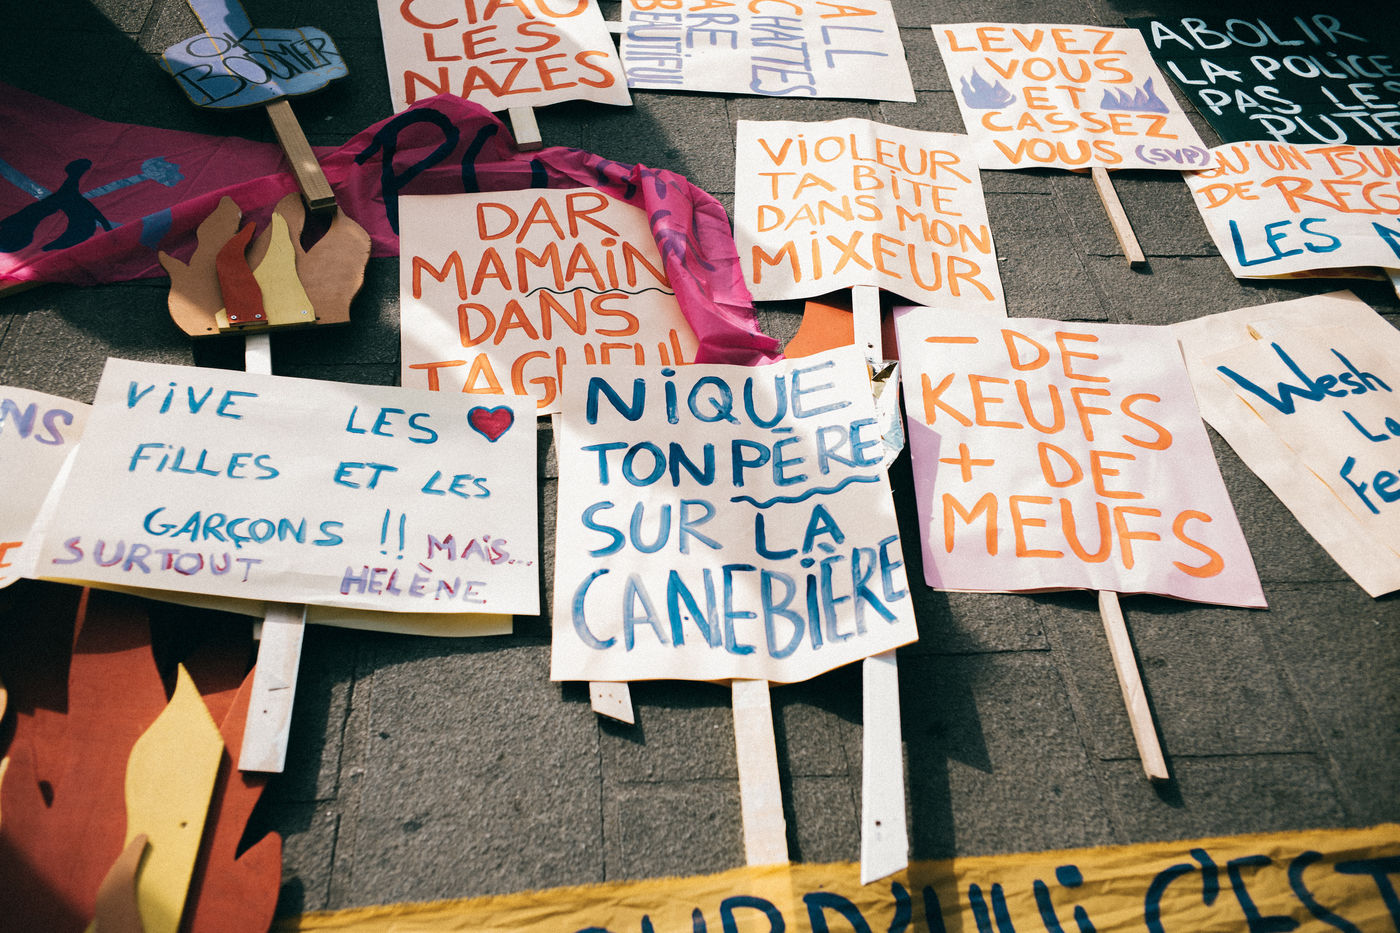 OK
BOOMER
CIAO
LES
NAZES
ALL
CHATTES
ARE
BEAUTIFUL
LEVEZ
VOUS
ET
CASSEZ
VOUS (SVP)
ABOLIR
LA POLICE
PAS LES
PUTES
VIOLEUR
TA BITE
DANS MON
MIXEUR
QU'UN TSUN
DE REG
LES
DAR
MAMAIN
DANS
TAGUEUL
- DE
KEUFS
+ DE
MEUFS
Wesh
NS
VIVE LES
FILLES ET LES
GARÇONS !! MAIS...
SURTOUT HELÈNE
NIQUE
TON PÈRE
SUR LA
CANEBIÈRE
C'EST